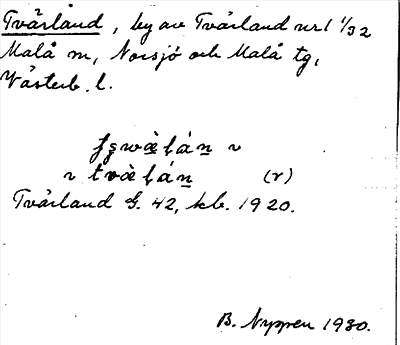 Tvärland, by av Tvärland nr 1 1/32
Malå sn, Norsjö och Malå tg,
Västerb. l.
tvæ̀ḷán (r)
Tvärland G. 42, kb. 1920.
B. Nyppen 1930.